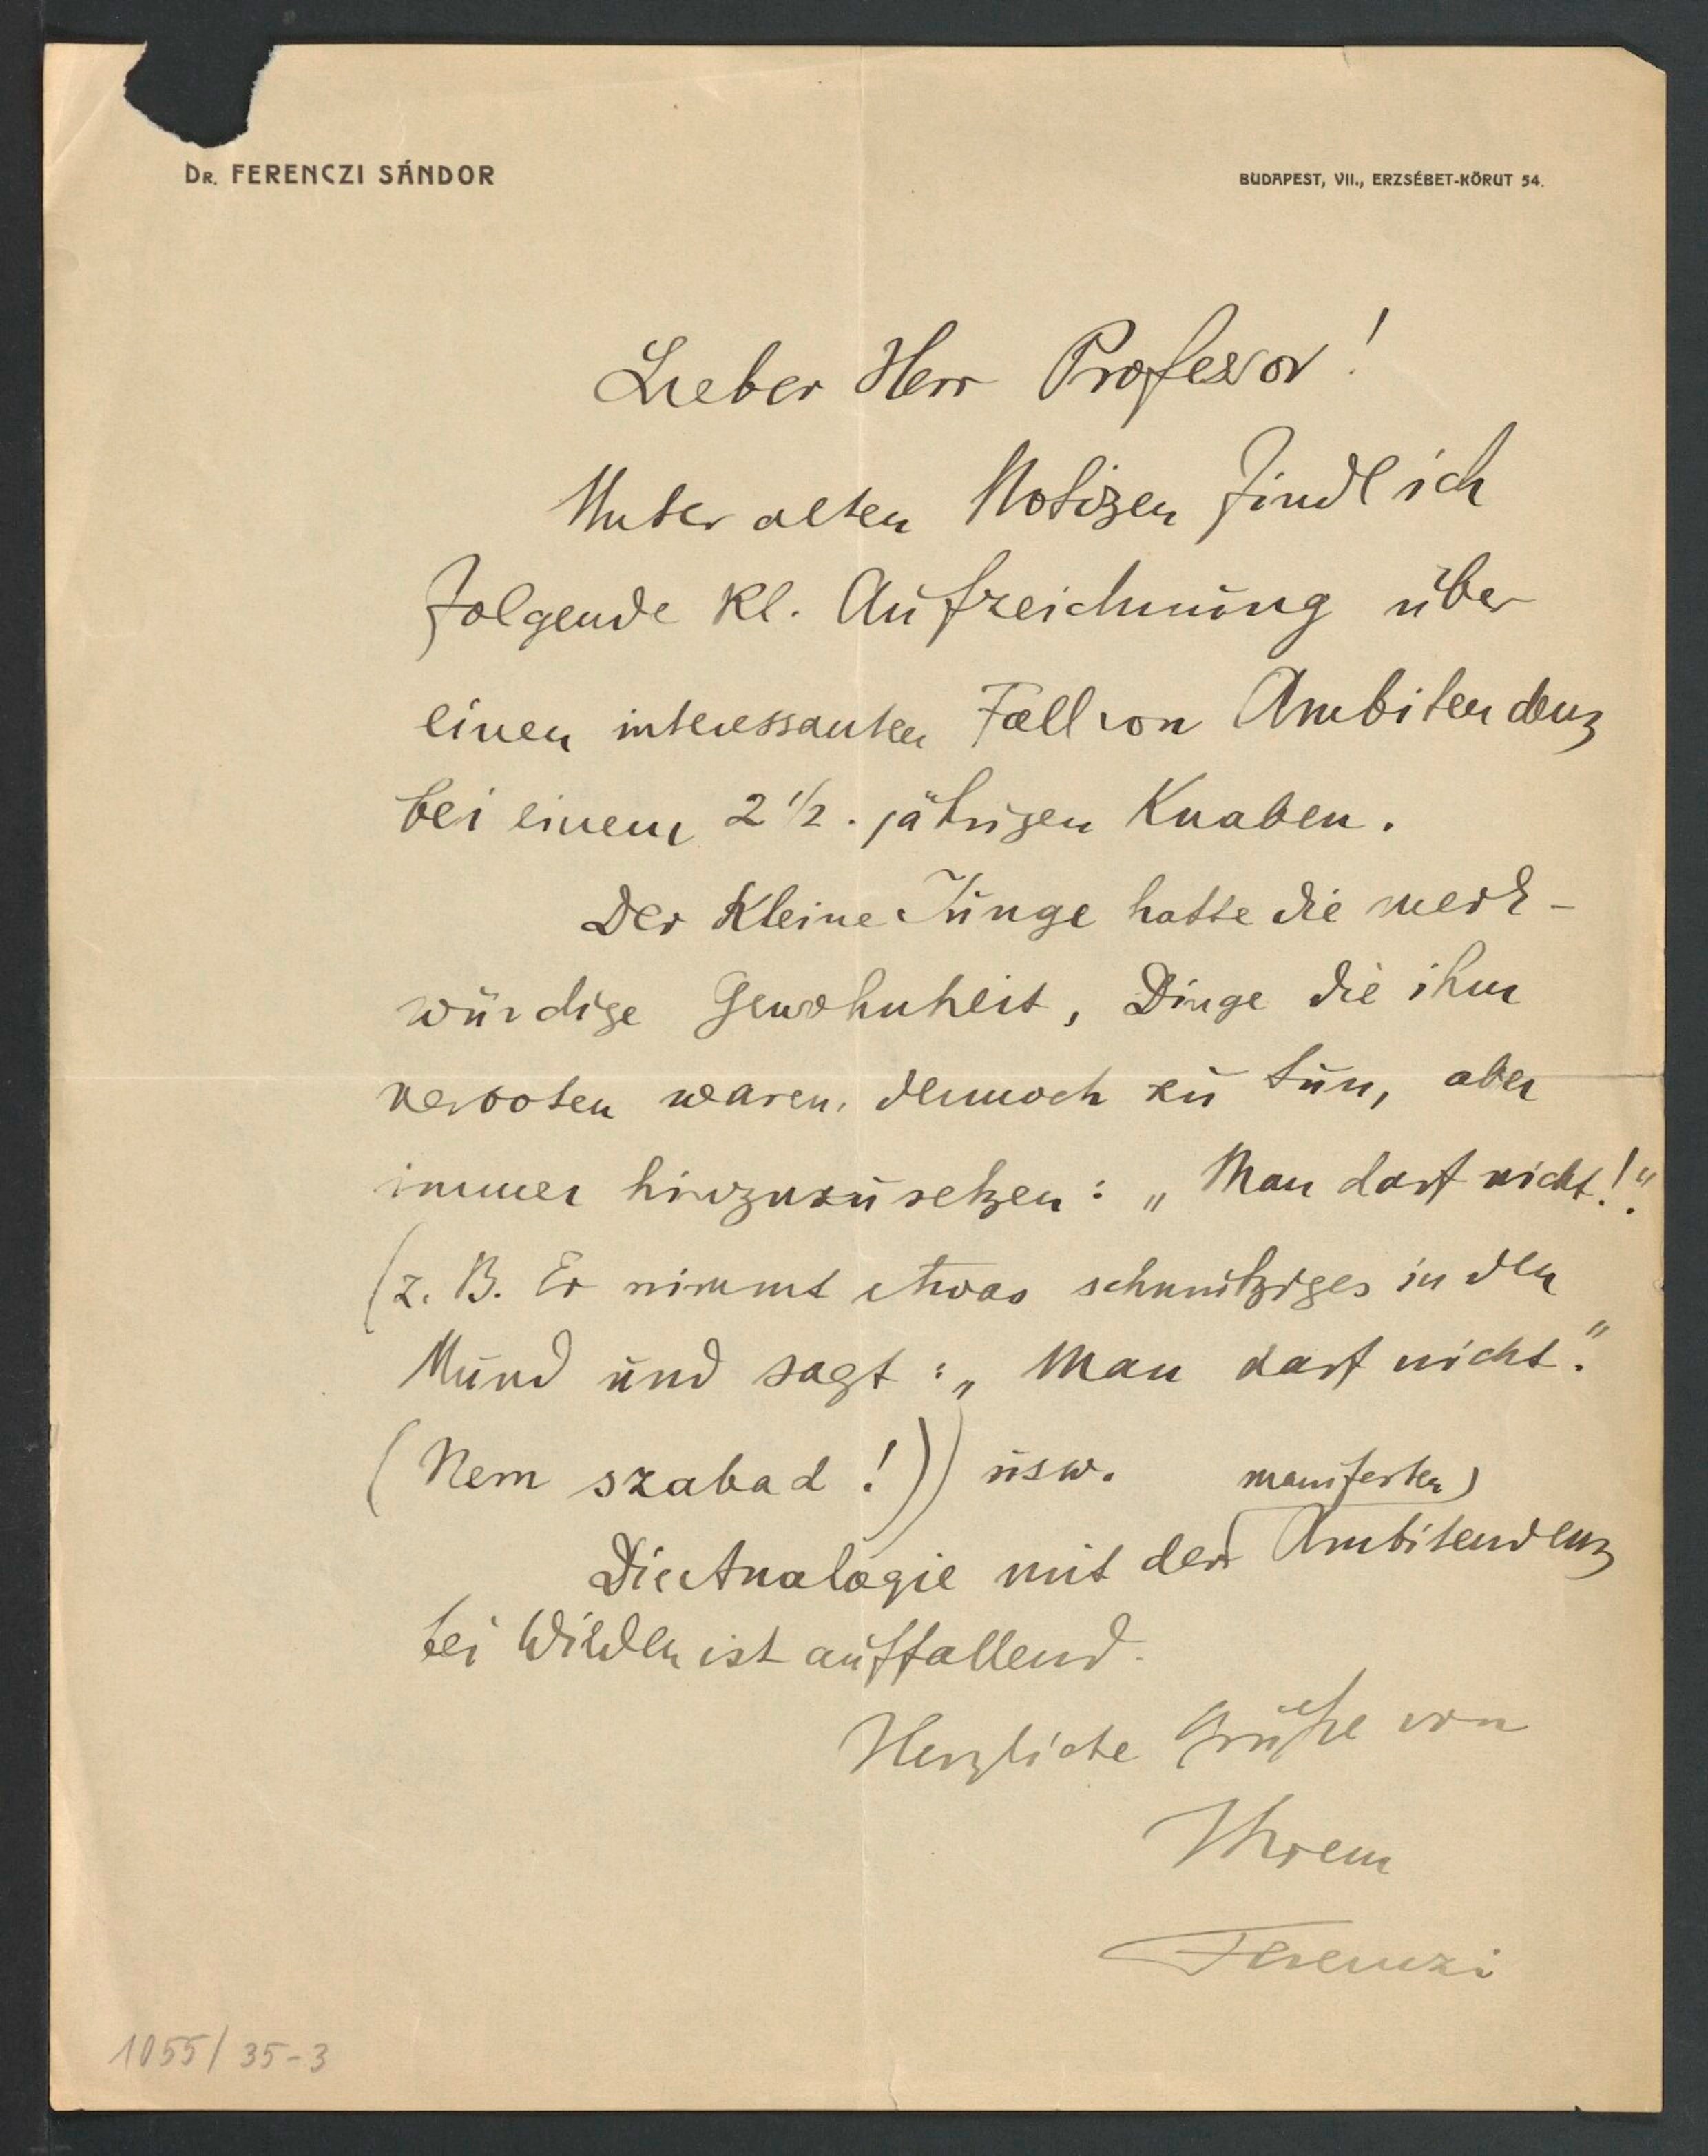 Dr. FERENCZI SÁNDOR
BUDAPEST, VII., ERZSÉBET-KÖRUT 54.
Lieber Herr Professor!
Unter alten Notizen find ich
folgende kl. Aufzeichnung über
einen interessanten Fall von Ambitendenz
bei einem 2½-jährigen Knaben.
Der Kleine Junge hatte die merk-
würdige Gewohnheit, Dinge die ihm
verboten waren, dennoch zu tun, aber
immer hinzuzusetzen: „Man darf nicht!“.
(z. B. Er nimmt etwas schmutziges in den
Mund und sagt: „Man darf nicht.“
(Nem szabad!)) usw.
manifesten
Die Analogie mit der Ambitendenz
bei Wilden ist auffallend.
Herzliche Grüße von
Ihrem
Ferenczi
1055/35-3